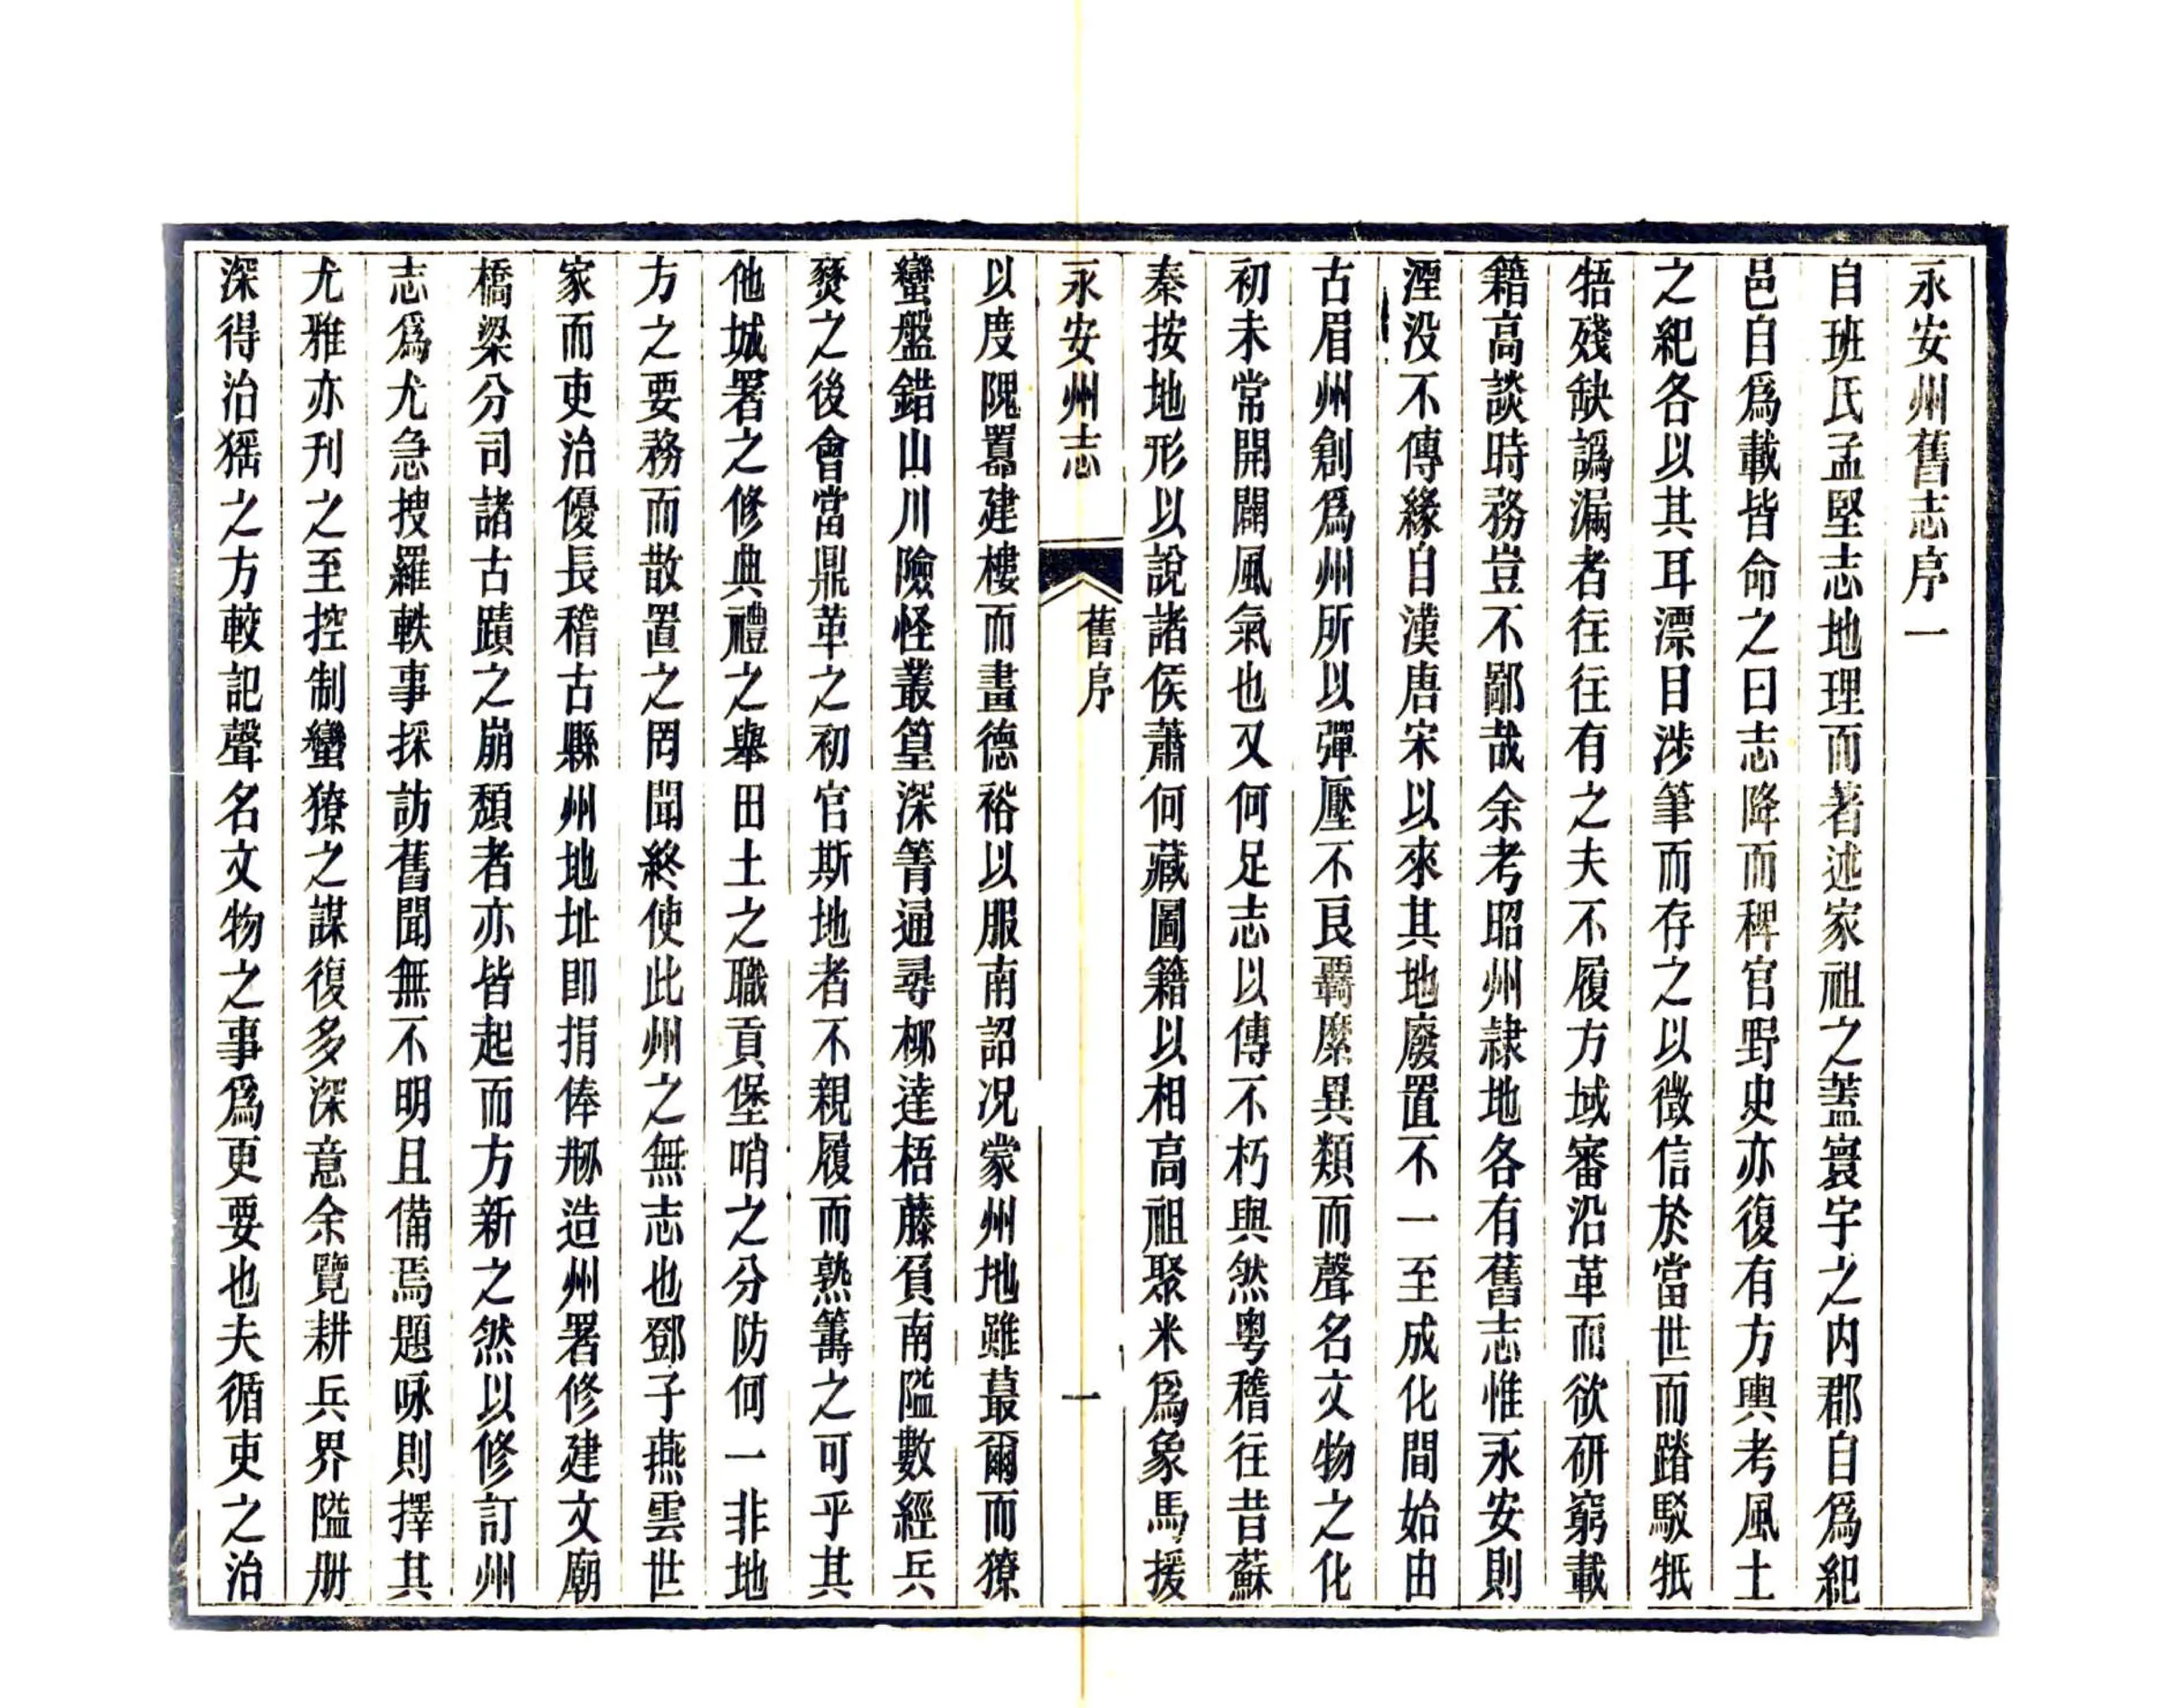 永安州舊志序一
自班氏孟堅志地理而著述家祖之蓋寰宇之内郡自爲紀
邑自爲載皆命之曰志降而稗官野史亦復有方輿考風土
之紀各以其耳漂目涉筆而存之以徵信於當世而踏駁牴
牾殘缺譌漏者往往有之夫不履方域審沿革而欲研窮載
籍高談時務豈不鄙哉余考昭州隷地各有舊志惟永安則
湮没不傳緣自漢唐宋以來其地廢置不一至成化間始由
古眉州創爲州所以彈壓不良覊縻異類而聲名文物之化
初未常開闢風氣也又何足志以傳不朽與然粤稽往昔蘇
秦按地形以說諸侯蕭何藏圖籍以相高祖聚米爲象馬援
永安州志
舊序
一
以度隗囂建樓而畫德裕以服南詔况蒙州地雖蕞爾而獠
蠻盤錯山川險怪叢篁深箐通尋栁達梧藤負南隘數經兵
燹之後會當鼎革之初官斯地者不親履而熟籌之可乎其
他城署之修典禮之舉田土之職貢堡哨之分防何一非地
方之要務而散置之罔聞終使此州之無志也鄧子燕雲世
家而吏治優長稽古縣州地址即捐俸刱造州署修建文廟
橋梁分司諸古蹟之崩頽者亦皆起而方新之然以修訂州
志爲尤急搜羅軼事採訪舊聞無不明且備焉題咏則擇其
尤雅亦刊之至控制蠻獠之謀復多深意余覽耕兵界隘册
深得治猺之方較記聲名文物之事爲更要也夫循吏之治